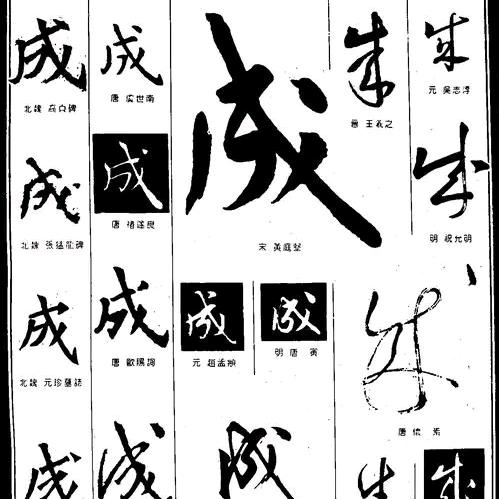 成
北魏 高貞碑
成
北魏 張猛龍碑
成
北魏 元珍墓誌
成
成
唐 虞世南
成
唐 褚遂良
成
唐 歐陽詢
成
成
宋 黃庭堅
成
元 趙孟頫
成
明 唐 寅
成
成
晉 王羲之
成
元 吳志淳
成
明 祝允明
成
唐 懷 素
成
成